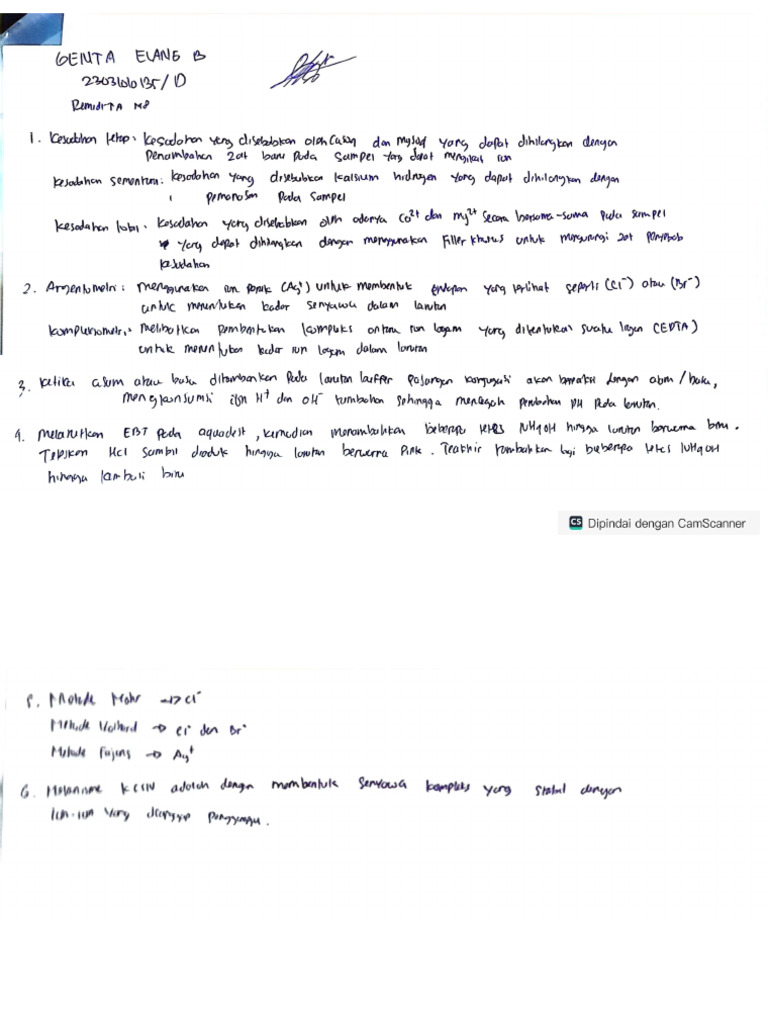 GENTA ELANG B
23031010135/D
Remidi TA M8
1. Kesadahan tetap: Kesadahan yang disebabkan oleh Ca504 dan Mg504 yang dapat dihilangkan dengan
Penambahan zat baru pada sampel yang dapat mengikat ion
Kesadahan sementara: Kesadahan yang disebabkan kalsium hidrogen yang dapat dihilangkan dengan
pemanasan pada sampel
Kesadahan total: Kesadahan yang disebabkan oleh adanya Ca²⁺ dan Mg²⁺ secara bersama-sama pada sampel
yang dapat dihilangkan dengan menggunakan filler khusus untuk mengurangi zat penyebab
kesadahan
2. Argentometri: menggunakan ion perak (Ag⁺) untuk membentuk endapan yang terlihat seperti (Cl⁻) atau (Br⁻)
untuk menentukan kadar senyawa dalam larutan
kompleksiometri: melibatkan pembentukan kompleks antara ion logam yang ditentukan suatu ligan (EDTA)
untuk menentukan kadar ion logam dalam larutan
3. Ketika asam atau basa ditambahkan pada larutan buffer pasangan konjugasi akan bereaksi dengan asam/basa,
mengkonsumsi ion H⁺ dan OH⁻ tambahan sehingga mencegah perubahan pH pada larutan.
4. Melarutkan EBT pada aquadest, kemudian menambahkan beberapa tetes NH4OH hingga larutan berwarna biru.
Teteskan HCl sambil diaduk hingga larutan berwarna Pink. Terakhir tambahkan lagi beberapa tetes NH4OH
hingga kembali biru
CS Dipindai dengan CamScanner
5. Metode Mohr → Cl⁻
Metode Volhard → Cl⁻ dan Br⁻
Metode Fajans → Ag⁺
6. Mekanisme KCSN adalah dengan membentuk senyawa kompleks yang stabil dengan
ion-ion yang dianggap pengganggu.